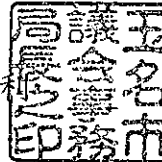 玉名市
議会事務
局長之印